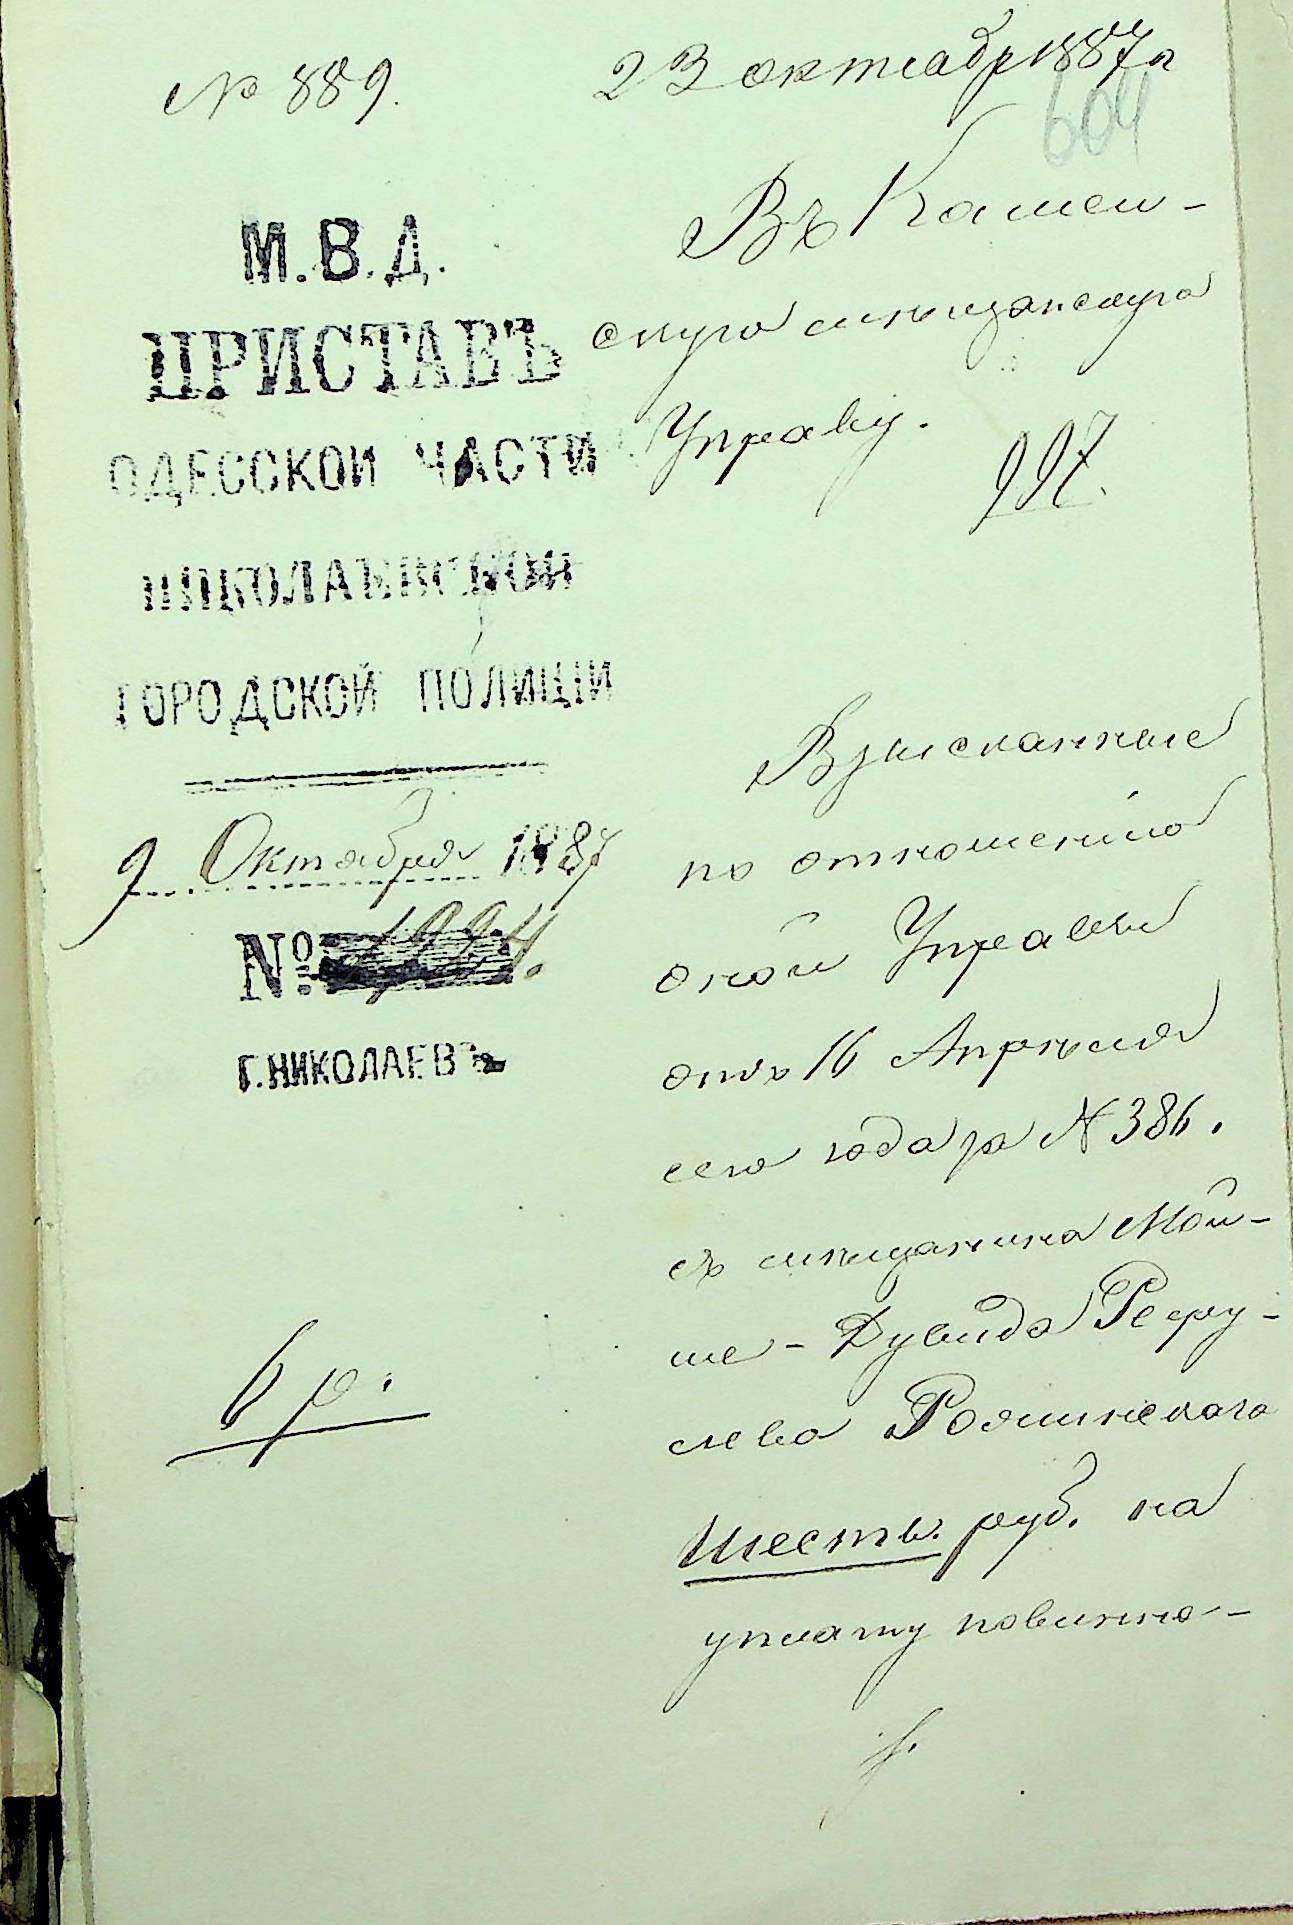 № 889.
23 октябр 1887 г
604
М.В.Д.
ПРИСТАВЪ
ОДЕССКОЙ ЧАСТИ
НИКОЛАЕВСКОЙ
ГОРОДСКОЙ ПОЛИЦІИ
9 Октября 1887
№
Г. НИКОЛАЕВЪ
6 р.
Въ Камен-
скую мѣщанскую
Управу.
997.
Взысканные
по отношенію
оной Управы
отъ 16 Апрѣля
сего года за № 386.
съ мѣщанина Мой-
ше-Дувида
Шесть руб. на
уплату повинно-